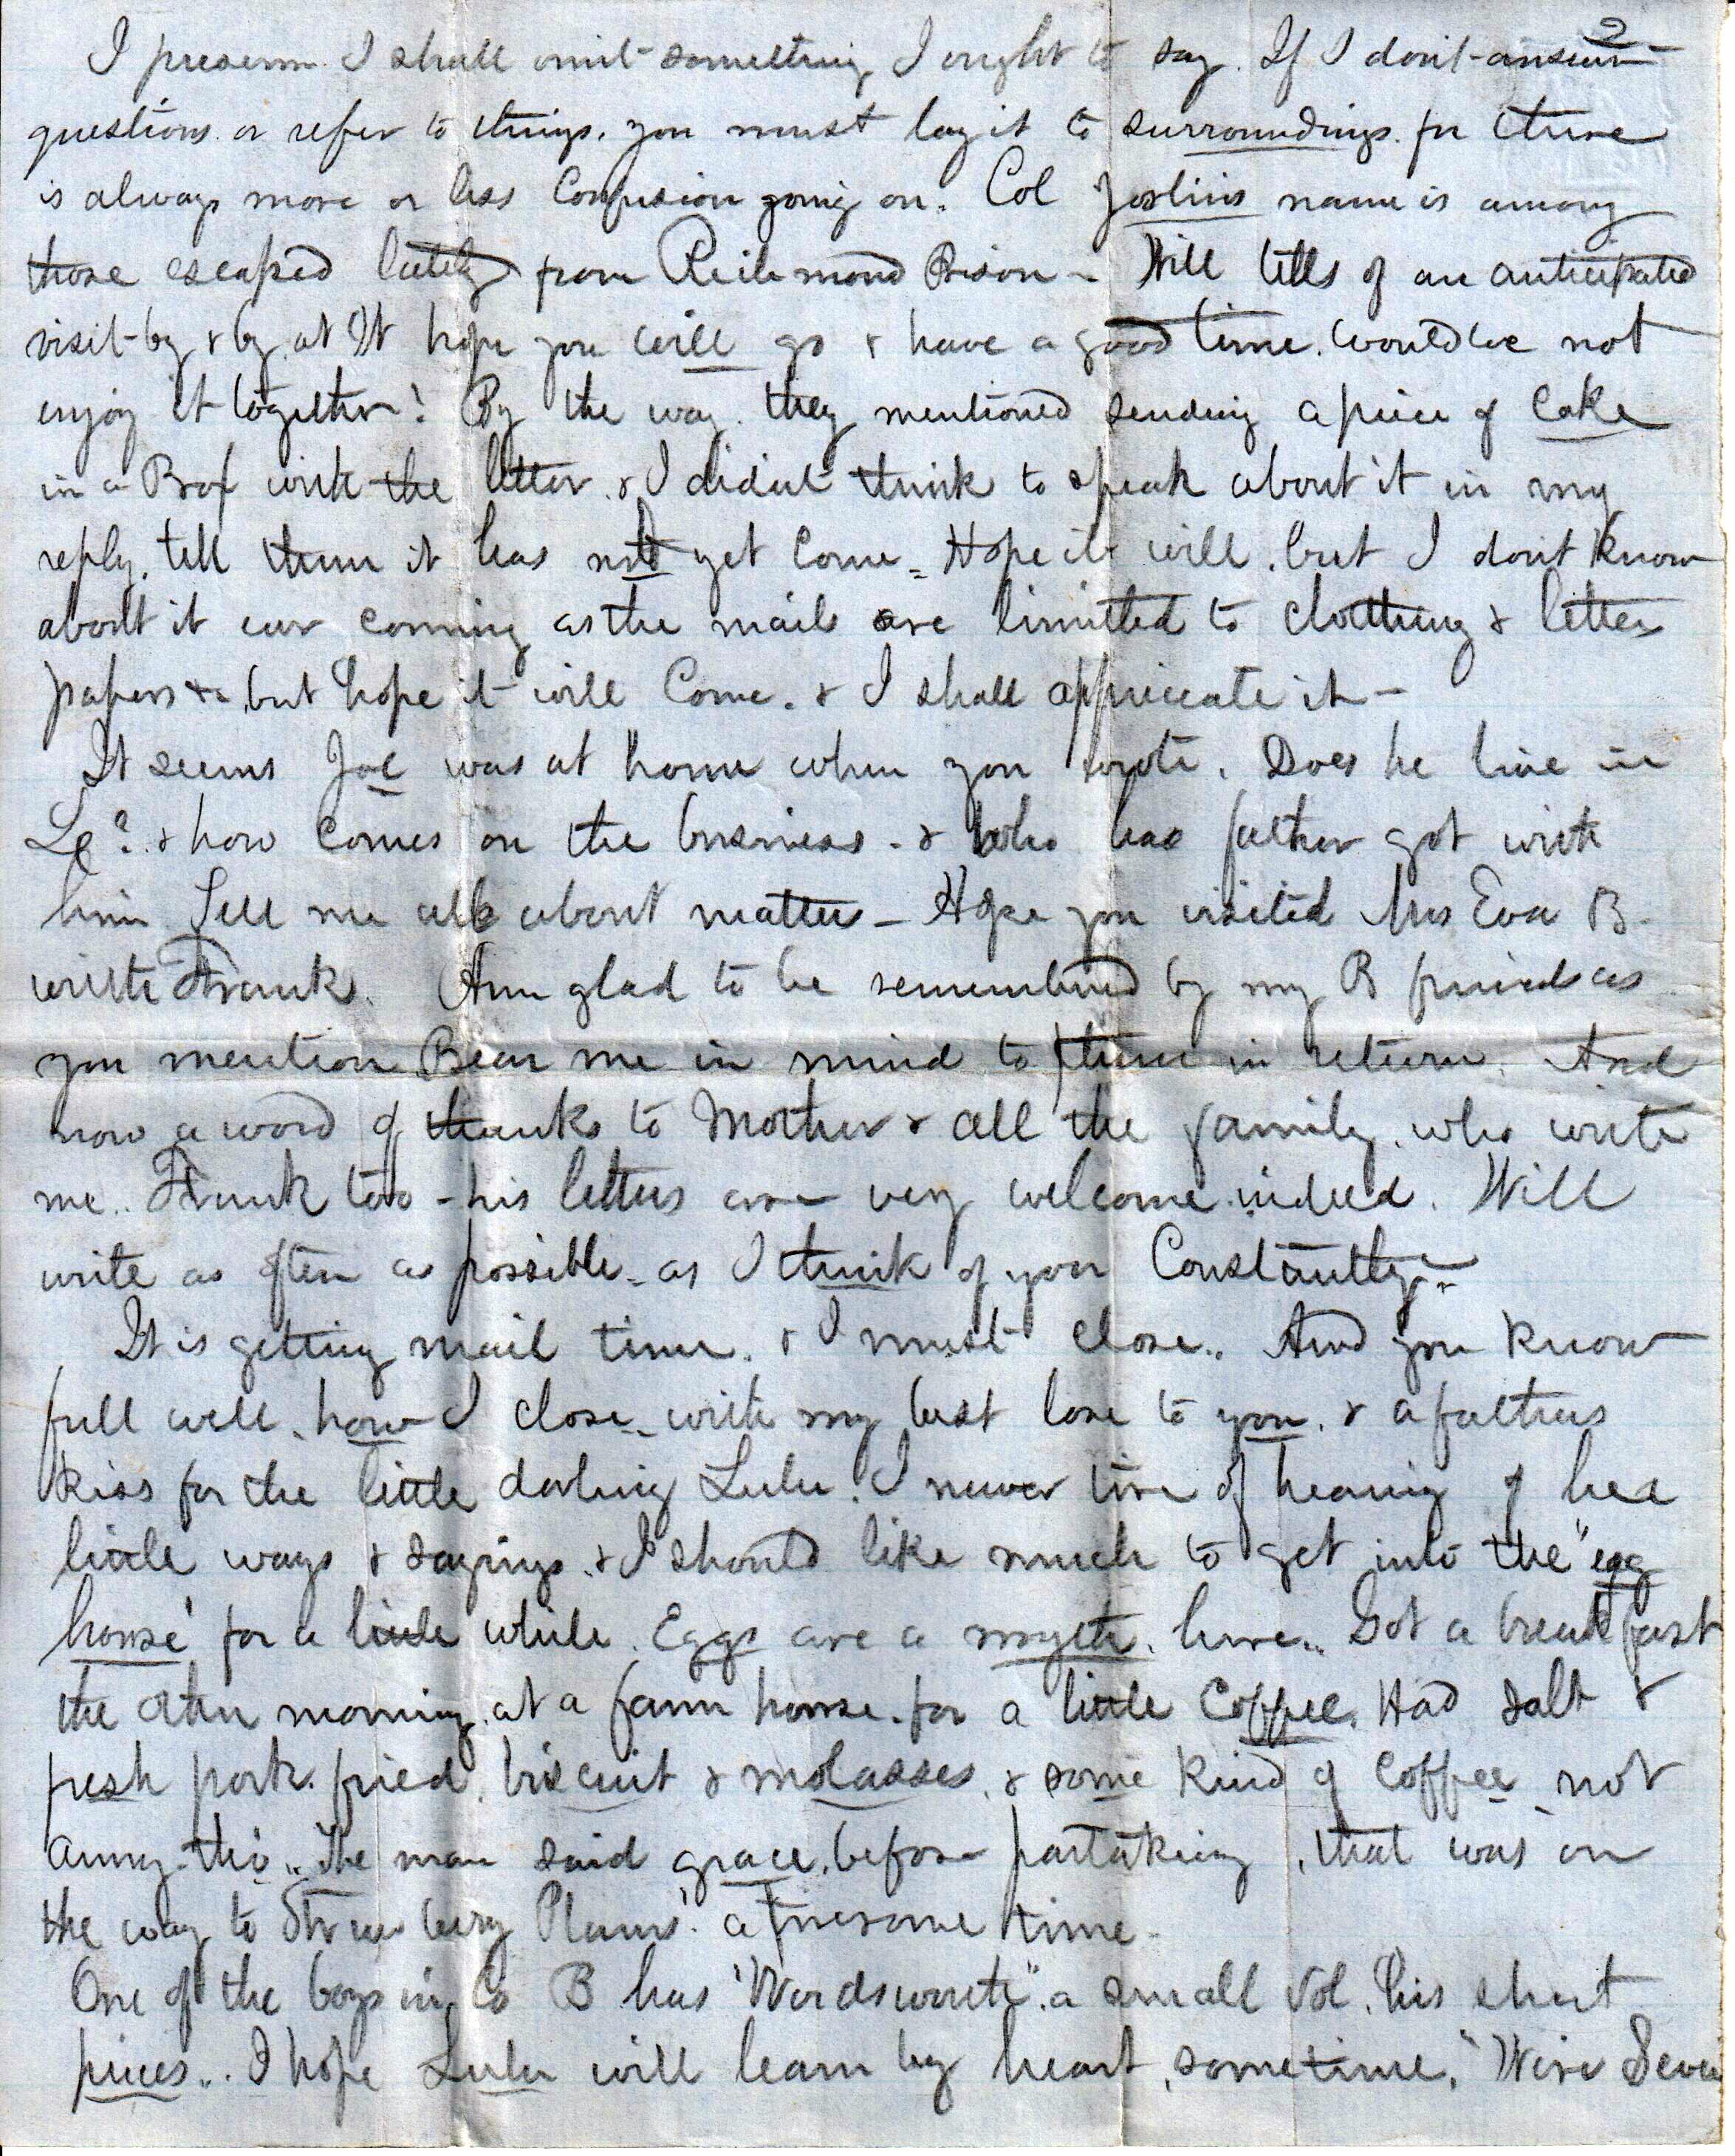 2
I presum I shall omit something I ought to say. If I don't answer
questions or refer to things. you must lay it to surroundings. for there
is always more or less Confusion going on. Col Joslins name is among
those escaped lately from Richmond Prison - Will tells of an anticipated
visit by & by at W hope you will go & have a good time. would we not
enjoy it together? By the way. they mentioned sending a piece of Cake
in a Box with the letter. & I didnt think to speak about it in my
reply. tell them it has not yet Come - Hope it will. but I don't know
about it ever coming as the mails are limitted to clothing & letter
papers &c. but hope it will Come. & I shall appreciate it -
It seems Joe was at home when you wrote. Does he live in
Le? & how comes on the business - & who has father got with
him Tell me all about matters - Hope you visited Mrs Eva B.
with Frank. Am glad to be remembered by my B friends as
you mention. Bear me in mind to them in return. And
now a word of thanks to Mother & all the family. who write
me.. Frank too - his letters are very welcome indeed. Will
write as often as possible - as I think of you Constantly -
It is getting mail time. & I must close.. And you know
full well. how I close.. with my best love to you. & a fathers
kiss for the little darling Lulu. I never tire of hearing of her
little ways & sayings. & I should like much to get into the "egg
house" for a little while. Eggs are a myth. here.. Got a breakfast
the other morning. at a farm house. for a little Coffee. Had salt &
fresh pork. fried. biscuit & molasses. & some kind of Coffee not
army. tho'.. The man said grace. before partaking. that was on
the way to Strawberry Plains. a tiresome time -
One of the boys in Co B has "Wordsworth". a small Vol. his short
pieces.. I hope Lulu will learn by heart, sometime, "We're Seven